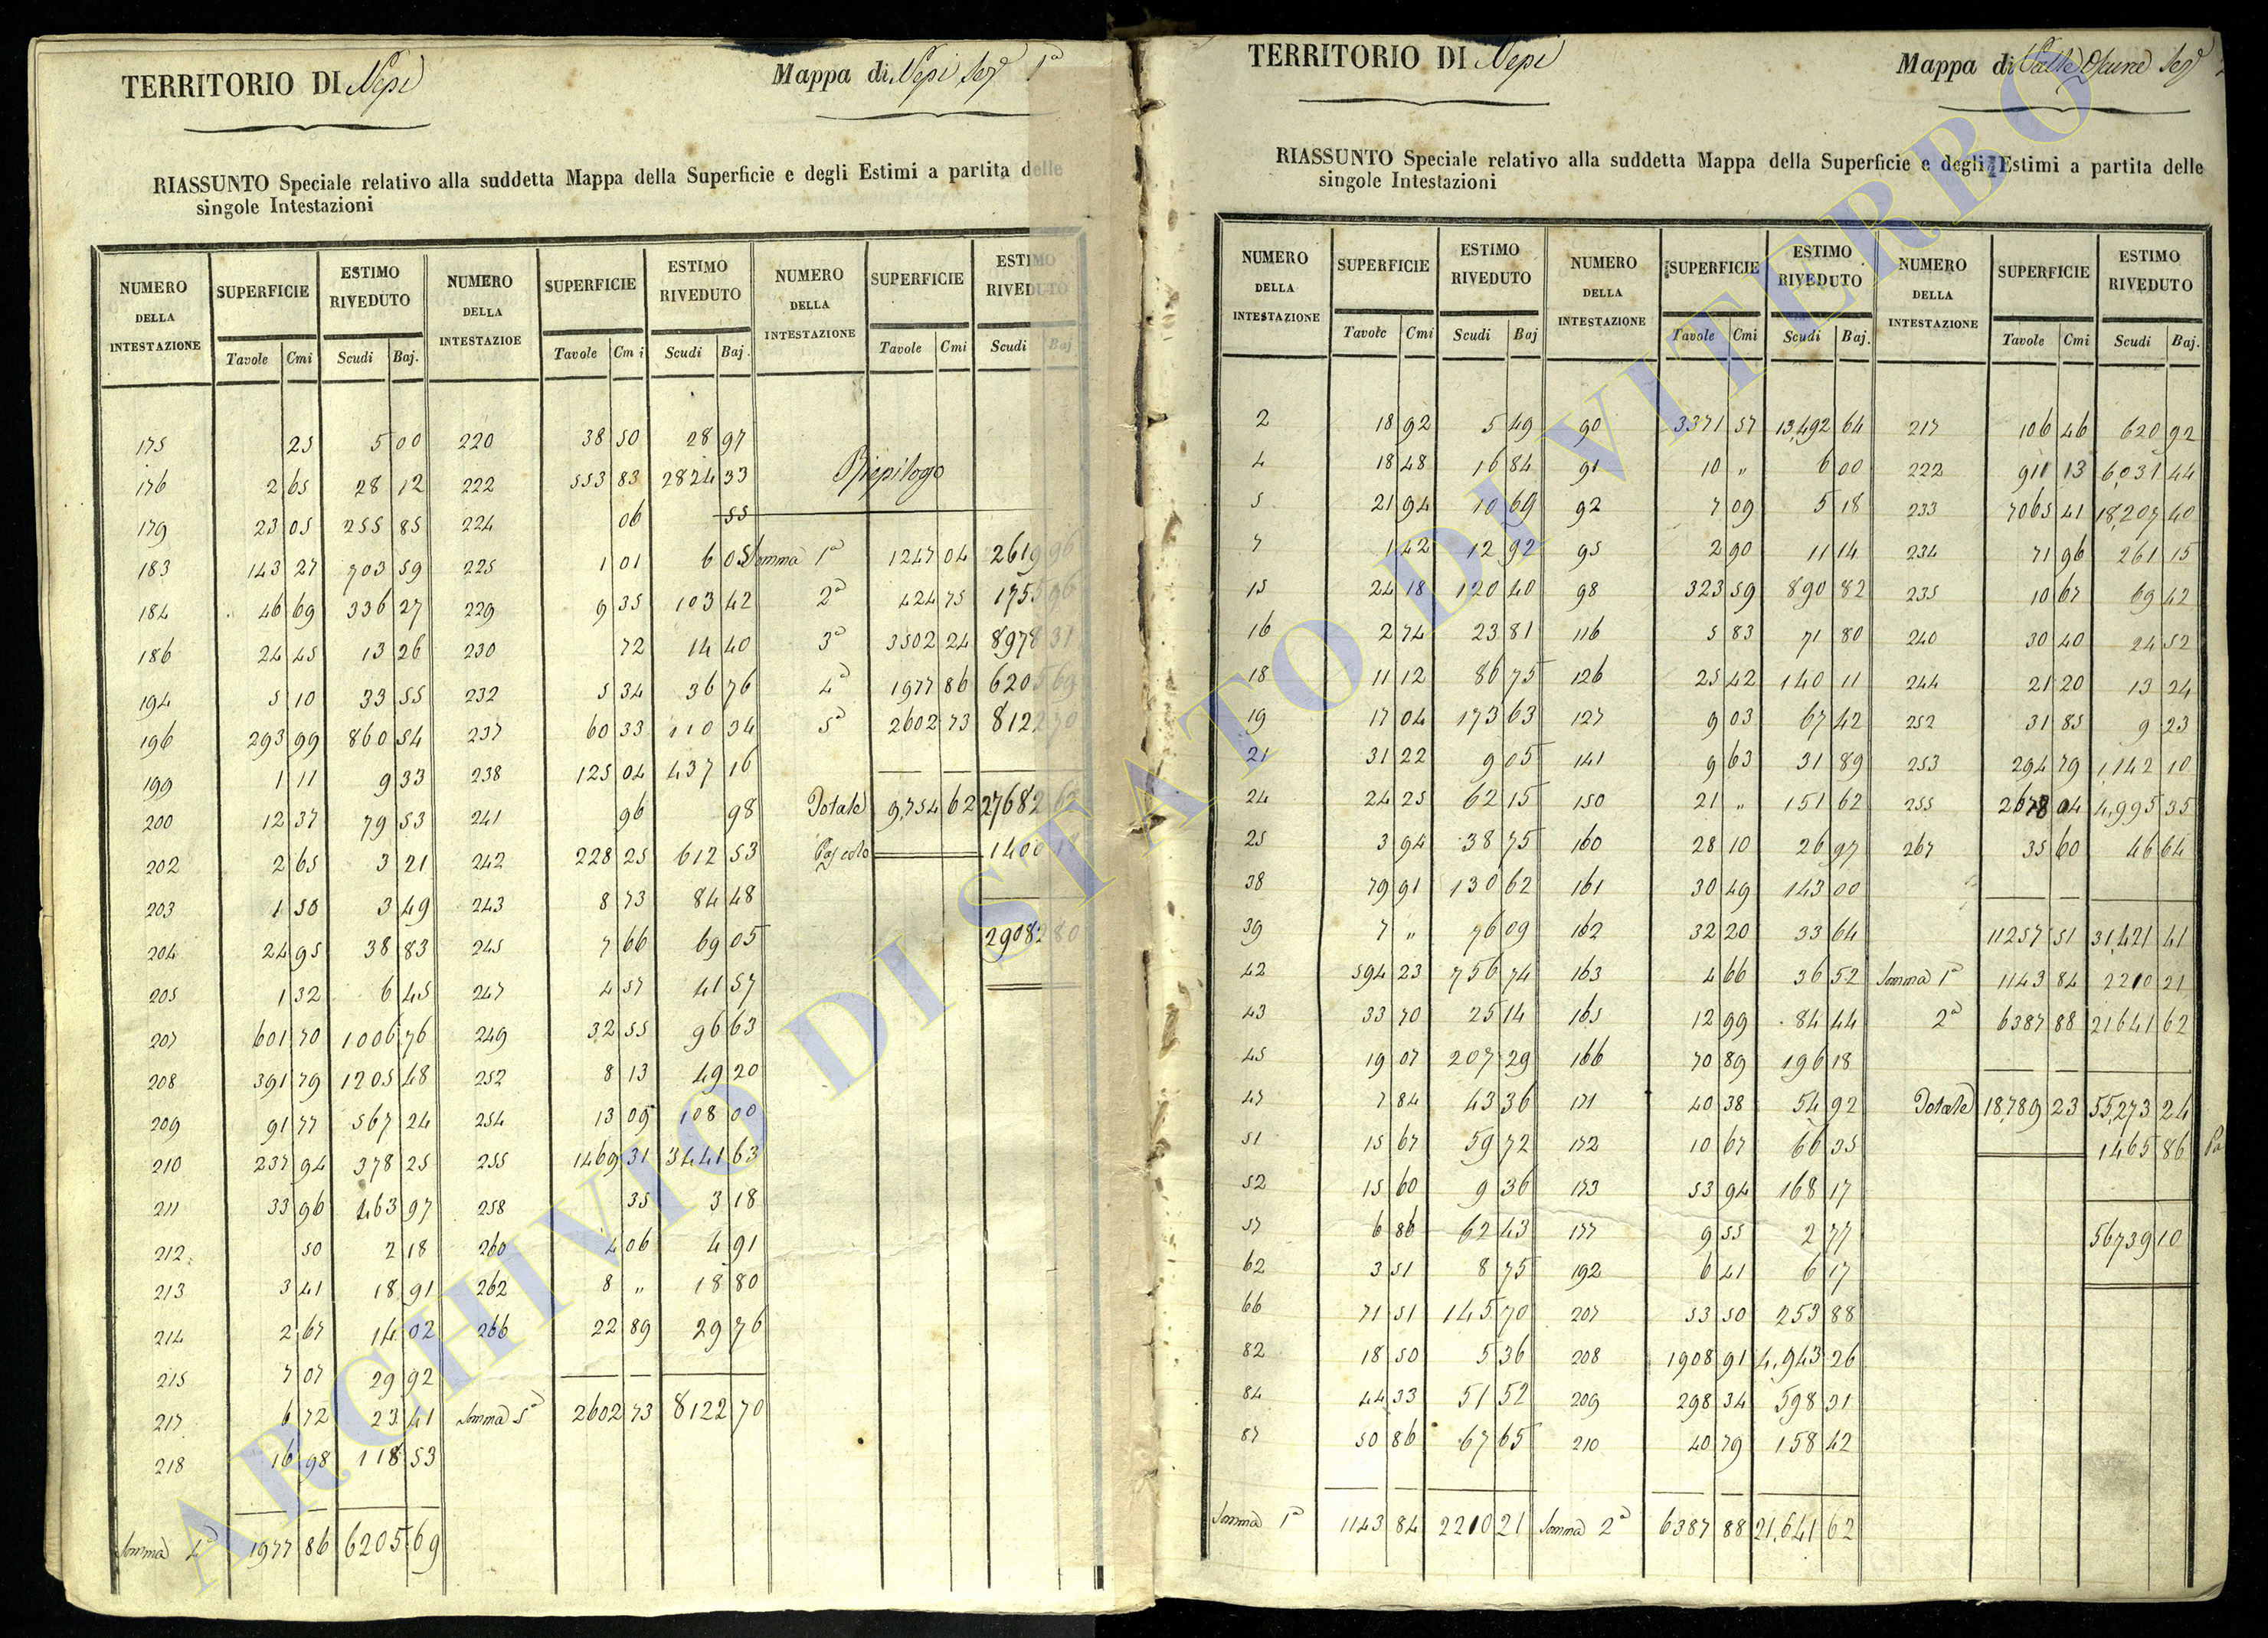 TERRITORIO DI Nepi
Mappa di Nepi Sez.e 1a
RIASSUNTO Speciale relativo alla suddetta Mappa della Superficie e degli Estimi a partita delle
singole Intestazioni
NUMERO DELLA INTESTAZIONE SUPERFICIE ESTIMO RIVEDUTO NUMERO DELLA INTESTAZIOE SUPERFICIE ESTIMO RIVEDUTO NUMERO DELLA INTESTAZIONE SUPERFICIE ESTIMO RIVEDUTO
Tavole Cmi Scudi Baj. Tavole Cmi Scudi Baj. Tavole Cmi Scudi Baj
175 25 5 00 220 38 50 28 97
176 2 65 28 12 222 553 83 2824 33 Riepilogo
179 23 05 255 85 224 06 55
183 143 27 703 59 225 1 01 6 05 Somma 1a 1247 04 2619 96
184 46 69 336 27 229 9 35 103 42 2a 424 75 1755 96
186 24 45 13 26 230 72 14 40 3a 3502 24 8978 31
194 5 10 33 55 232 5 34 36 76 4a 1977 86 6205 69
196 293 99 860 54 237 60 33 110 34 5a 2602 73 8122 70
199 1 11 9 33 238 125 04 437 16
200 12 37 79 53 241 96 98 Totale 9,754 62 27682 62
202 2 65 3 21 242 228 25 612 53 Pascolo 1400 18
203 1 50 3 49 243 8 73 84 48
204 24 95 38 83 245 7 66 69 05 29082 80
205 1 32 6 45 247 4 57 41 57
207 601 70 1006 76 249 32 55 96 63
208 391 79 1205 48 252 8 13 49 20
209 91 77 567 24 254 13 05 108 00
210 237 94 378 25 255 1469 31 3441 63
211 33 96 463 97 258 35 3 18
212 50 2 18 260 4 06 4 91
213 3 41 18 91 262 8 „ 18 80
214 2 67 14 02 266 22 89 29 76
215 7 07 29 92
217 6 72 23 41 Somma 5a 2602 73 8122 70
218 16 98 118 53
Somma 4a 1977 86 6205 69
TERRITORIO DI Nepi
Mappa di Valle Oscura Sez.e
RIASSUNTO Speciale relativo alla suddetta Mappa della Superficie e degli Estimi a partita delle
singole Intestazioni
NUMERO DELLA INTESTAZIONE SUPERFICIE ESTIMO RIVEDUTO NUMERO DELLA INTESTAZIONE SUPERFICIE ESTIMO RIVEDUTO NUMERO DELLA INTESTAZIONE SUPERFICIE ESTIMO RIVEDUTO
Tavole Cmi Scudi Baj Tavole Cmi Scudi Baj. Tavole Cmi Scudi Baj.
2 18 92 5 49 90 3371 57 13,492 64 217 106 46 620 92
4 18 48 16 84 91 10 „ 6 00 222 911 13 6,031 44
5 21 94 10 69 92 7 09 5 18 233 7065 41 18,207 40
7 1 42 12 92 95 2 90 11 14 234 71 96 261 15
15 24 18 120 40 98 323 59 890 82 235 10 67 69 42
16 2 74 23 81 116 5 83 71 80 240 30 40 24 52
18 11 12 86 75 126 25 42 140 11 244 21 20 13 24
19 17 04 173 63 127 9 03 67 42 252 31 85 9 23
21 31 22 9 05 141 9 63 31 89 253 294 79 1,142 10
24 24 25 62 15 150 21 „ 151 62 255 2678 04 4,995 35
25 3 94 38 75 160 28 10 26 97 267 35 60 46 64
38 79 91 130 62 161 30 49 143 00
39 7 „ 76 09 162 32 20 33 64 11257 51 31,421 41
42 594 23 756 74 163 4 66 36 52 Somma 1a 1143 84 2210 21
43 33 70 25 14 165 12 99 84 44 2a 6387 88 21641 62
45 19 07 207 29 166 70 89 196 18
47 7 84 43 36 171 40 38 54 92 Totale 18,789 23 55,273 24
51 15 67 59 72 172 10 67 66 35 1465 86 Pa
52 15 60 9 36 173 53 94 168 17
57 6 86 62 43 177 9 55 2 77 56739 10
62 3 51 8 75 192 6 41 6 17
66 71 51 145 70 207 53 50 253 88
82 18 50 5 36 208 1908 91 4,943 26
84 44 33 51 52 209 298 34 598 31
87 50 86 67 65 210 40 79 158 42
Somma 1a 1143 84 2210 21 Somma 2a 6387 88 21,641 62
ARCHIVIO DI STATO DI VITERBO